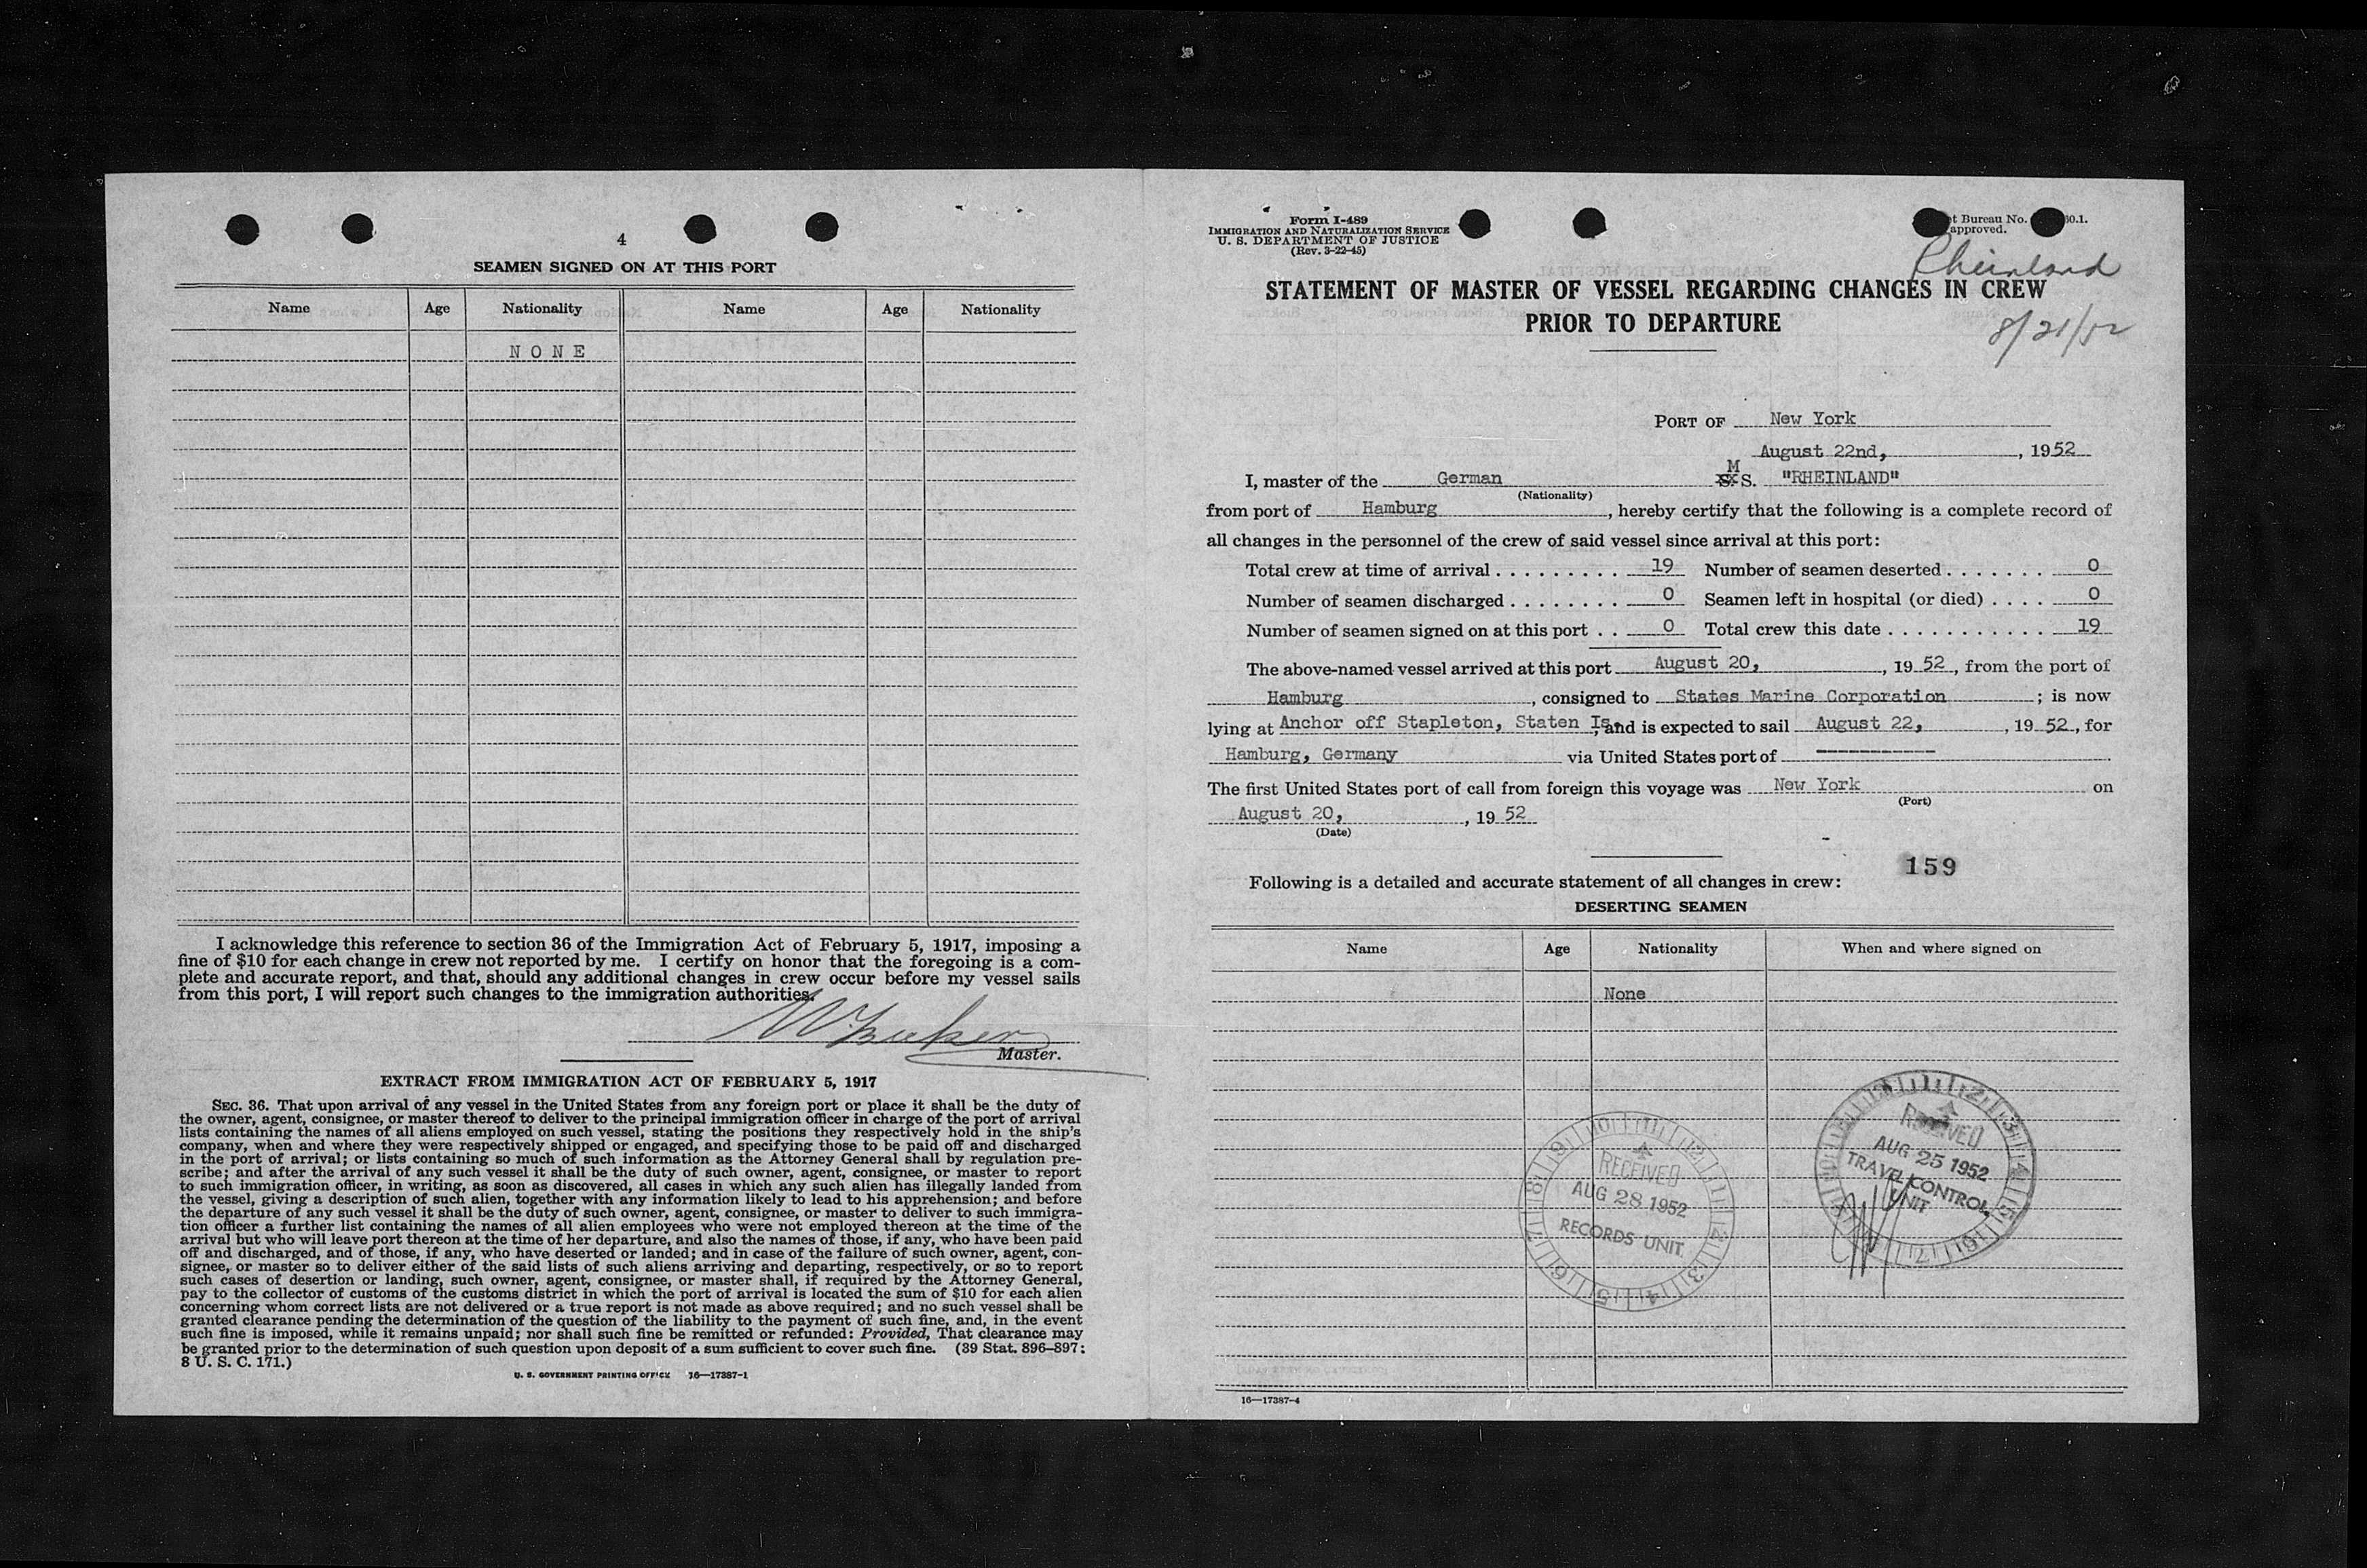 4
SEAMEN SIGNED ON AT THIS PORT
Name Age Nationality Name Age Nationality
NONE
I acknowledge this reference to section 36 of the Immigration Act of February 5, 1917, imposing a
fine of $10 for each change in crew not reported by me. I certify on honor that the foregoing is a com-
plete and accurate report, and that, should any additional changes in crew occur before my vessel sails
from this port, I will report such changes to the immigration authorities.
Master.
EXTRACT FROM IMMIGRATION ACT OF FEBRUARY 5, 1917
SEC. 36. That upon arrival of any vessel in the United States from any foreign port or place it shall be the duty of
the owner, agent, consignee, or master thereof to deliver to the principal immigration officer in charge of the port of arrival
lists containing the names of all aliens employed on such vessel, stating the positions they respectively hold in the ship's
company, when and where they were respectively shipped or engaged, and specifying those to be paid off and discharged
in the port of arrival; or lists containing so much of such information as the Attorney General shall by regulation pre-
scribe; and after the arrival of any such vessel it shall be the duty of such owner, agent, consignee, or master to report
to such immigration officer, in writing, as soon as discovered, all cases in which any such alien has illegally landed from
the vessel, giving a description of such alien, together with any information likely to lead to his apprehension; and before
the departure of any such vessel it shall be the duty of such owner, agent, consignee, or master to deliver to such immigra-
tion officer a further list containing the names of all alien employees who were not employed thereon at the time of the
arrival but who will leave port thereon at the time of her departure, and also the names of those, if any, who have been paid
off and discharged, and of those, if any, who have deserted or landed; and in case of the failure of such owner, agent, con-
signee, or master so to deliver either of the said lists of such aliens arriving and departing, respectively, or so to report
such cases of desertion or landing, such owner, agent, consignee, or master shall, if required by the Attorney General,
pay to the collector of customs of the customs district in which the port of arrival is located the sum of $10 for each alien
concerning whom correct lists are not delivered or a true report is not made as above required; and no such vessel shall be
granted clearance pending the determination of the question of the liability to the payment of such fine, and, in the event
such fine is imposed, while it remains unpaid; nor shall such fine be remitted or refunded: Provided, That clearance may
be granted prior to the determination of such question upon deposit of a sum sufficient to cover such fine. (39 Stat. 896–897;
8 U. S. C. 171.)
U. S. GOVERNMENT PRINTING OFFICE 16—17387-1
Form I-489
IMMIGRATION AND NATURALIZATION SERVICE
U. S. DEPARTMENT OF JUSTICE
(Rev. 3-22-45)
Bureau No.
approved.
Rheinland
STATEMENT OF MASTER OF VESSEL REGARDING CHANGES IN CREW
PRIOR TO DEPARTURE
8/21/52
PORT OF New York
August 22nd, , 1952
I, master of the German M S. "RHEINLAND"
(Nationality)
from port of Hamburg , hereby certify that the following is a complete record of
all changes in the personnel of the crew of said vessel since arrival at this port:
Total crew at time of arrival . . . . . . . . . 19 Number of seamen deserted . . . . . . . 0
Number of seamen discharged . . . . . . . . 0 Seamen left in hospital (or died) . . . . 0
Number of seamen signed on at this port . . 0 Total crew this date . . . . . . . . . . . . 19
The above-named vessel arrived at this port August 20, , 19 52 , from the port of
Hamburg , consigned to States Marine Corporation ; is now
lying at Anchor off Stapleton, Staten Is. , and is expected to sail August 22, , 19 52 , for
Hamburg, Germany via United States port of ------------
The first United States port of call from foreign this voyage was New York on
(Port)
August 20, , 19 52
(Date)
159
Following is a detailed and accurate statement of all changes in crew:
DESERTING SEAMEN
Name Age Nationality When and where signed on
None
RECEIVED
AUG 28 1952
RECORDS UNIT
RECEIVED
AUG 25 1952
TRAVEL CONTROL
UNIT
16—17387-4